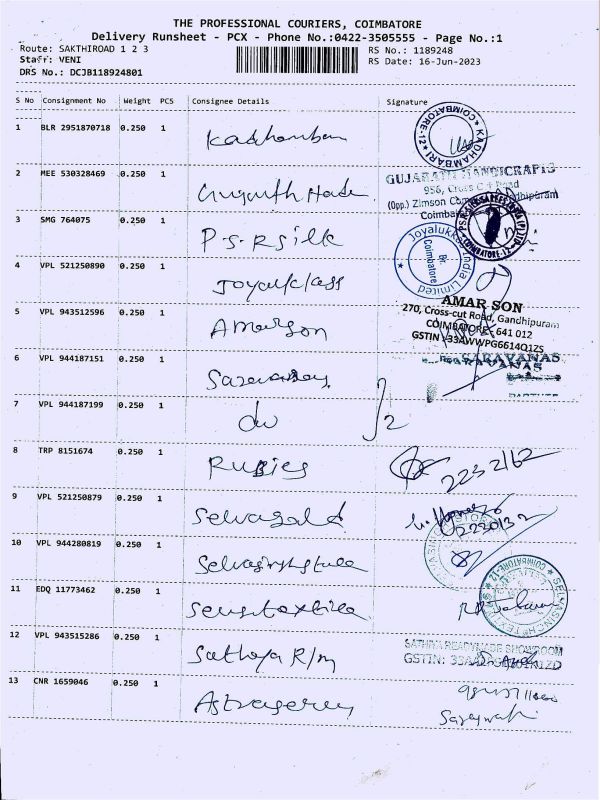 THE PROFESSIONAL COURIERS, COIMBATORE
Delivery Runsheet - PCX - Phone No.:0422-3505555 - Page No.:1
Route: SAKTHIROAD 1 2 3
RS No.: 1189248
Staff: VENI
RS Date: 16-Jun-2023
DRS No.: DCJB118924801
S No Consignment No Weight PCS Consignee Details Signature
1 BLR 2951870718 0.250 1 Kadhambari
KADHAMBARI COIMBATORE-12
2 MEE 530328469 0.250 1
GUJARATH HANDICRAFTS
956, Cross Cut Road
(Opp.) Zimson Gandhipuram
Coimbatore
3 SMG 764075 0.250 1 P.S.R silk
COIMBATORE-12
4 VPL 521250890 0.250 1 Joyalukass
Joyalukkas India Limited
Br.
Coimbatore
5 VPL 943512596 0.250 1 Amarson
AMAR SON
270, Cross-cut Road, Gandhipuram
COIMBATORE - 641 012
GSTIN : 33AWWPG6614Q1ZS
6 VPL 944187151 0.250 1
SARAVANAS
7 VPL 944187199 0.250 1 do
8 TRP 8151674 0.250 1 Rubies
2232162
9 VPL 521250879 0.250 1 Selvagold
10 VPL 944280819 0.250 1
11 EDQ 11773462 0.250 1
COIMBATORE-12
12 VPL 943515286 0.250 1 Sathya R/m
SATHYA READYMADE SHOWROOM
GSTIN:
13 CNR 1659046 0.250 1